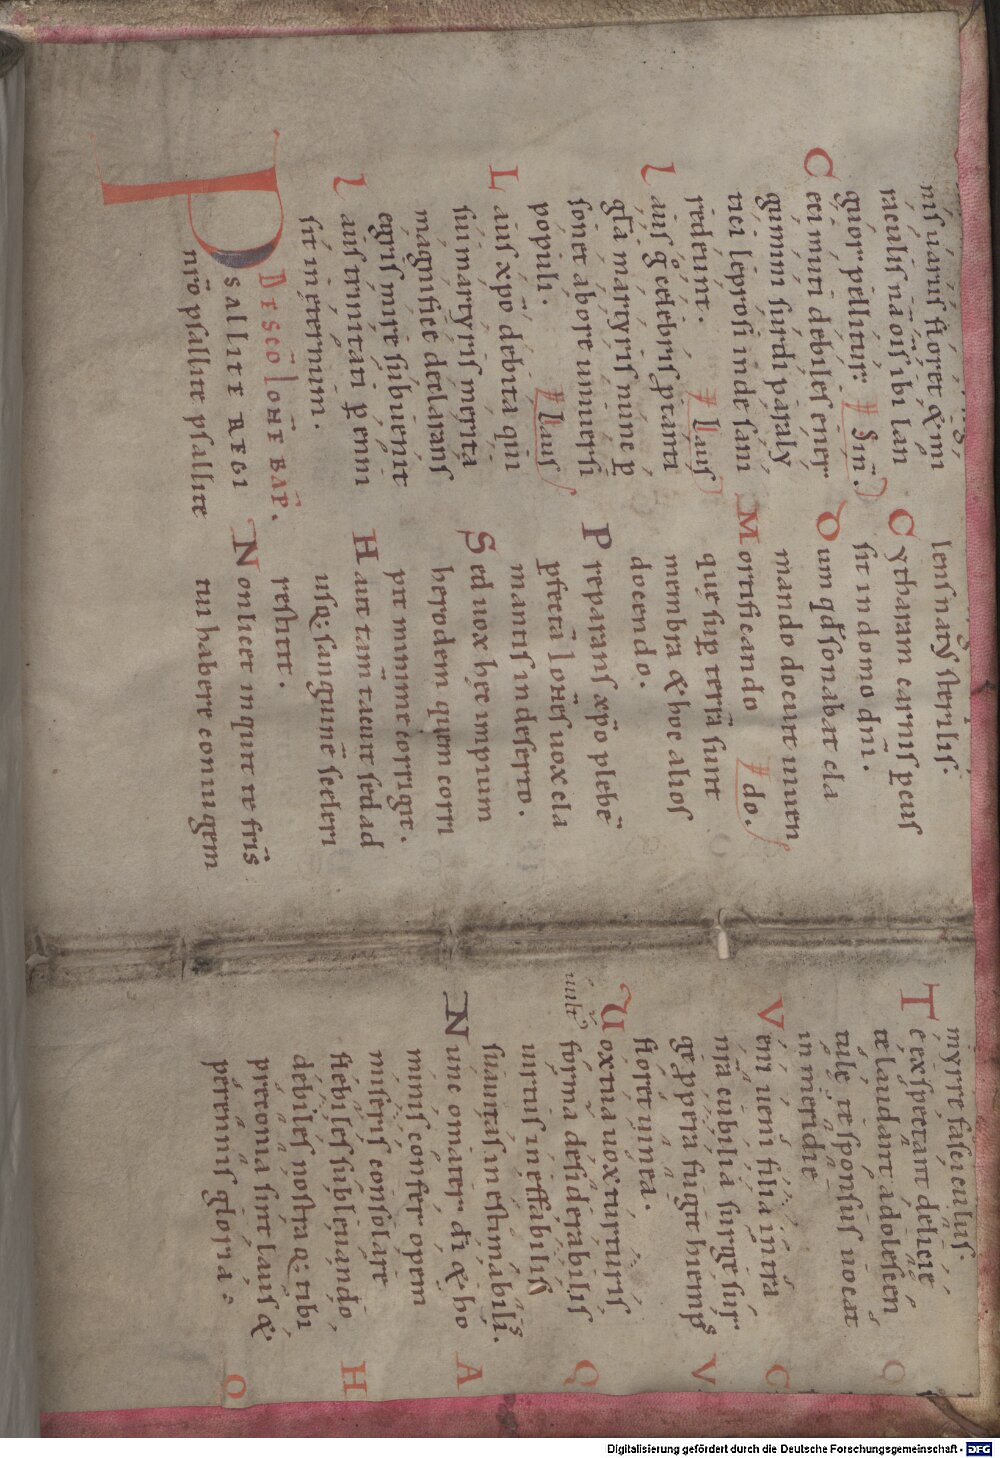 nis uarus floret & m
raculis nā oīs ibi lan
guor pellitur. ℣ Sin̄.
Ceci muti debiles ener
gumini surdi paraly
tici leprosi inde sani
redeunt. ℣ Laus
Laus ḡ celebris ꝑtanti
gl̄a martyris nunc ꝑ
sonet ab ore uniuersi
populi. ℣ Laus
Laus xp̄o debita qui
sui martyris merita
magnifice declarans
egris mire subuenit
Laus trinitati ꝑ enni
sit in ęternum.
DE SC̄O IOH̄E BAP̄.
PSALLITE REGI
nr̄o psallite psallite
lens naty sterilis.
Cytharam carnis ꝑcus
sit in domo dn̄i.
Dum qd̄ sonabat cla
mando docuit inuen
Mortificando ℣ do.
quę sup̱ terrā sunt
membra & hoc alios
docendo.
Preparans xp̄o plebē
ꝑfectā ioh̄es uox cla
mantis in deserto.
Sed uox hęc impium
herodem quem corri
pit minime corrigit.
Haut tam̄ tacuit sed ad
usq; sanguinē sceleri
restitit.
Non licet inquit te fr̄is
tui habere coniugem
myrre fasciculus.
Te exsꝑectant delicie
te laudant adolescen
tulę te sponsus uocat
in meridie
Veni ueni filia intra
nr̄a cubilia surge sur
ge ppera fugit hiemps
floret uinea.
Uox tua uox turturis
forma desiderabilis
uirtus ineffabilis
suauitas inestimabilis.
Nunc o mater dī & ho
minis confer opem
miseris consolare
flebiles subleuando
debiles nostraq; tibi
precoma sint laus &
perennis gloria.
Q
C
V
Q
A
H
O
Digitalisierung gefördert durch die Deutsche Forschungsgemeinschaft - DFG